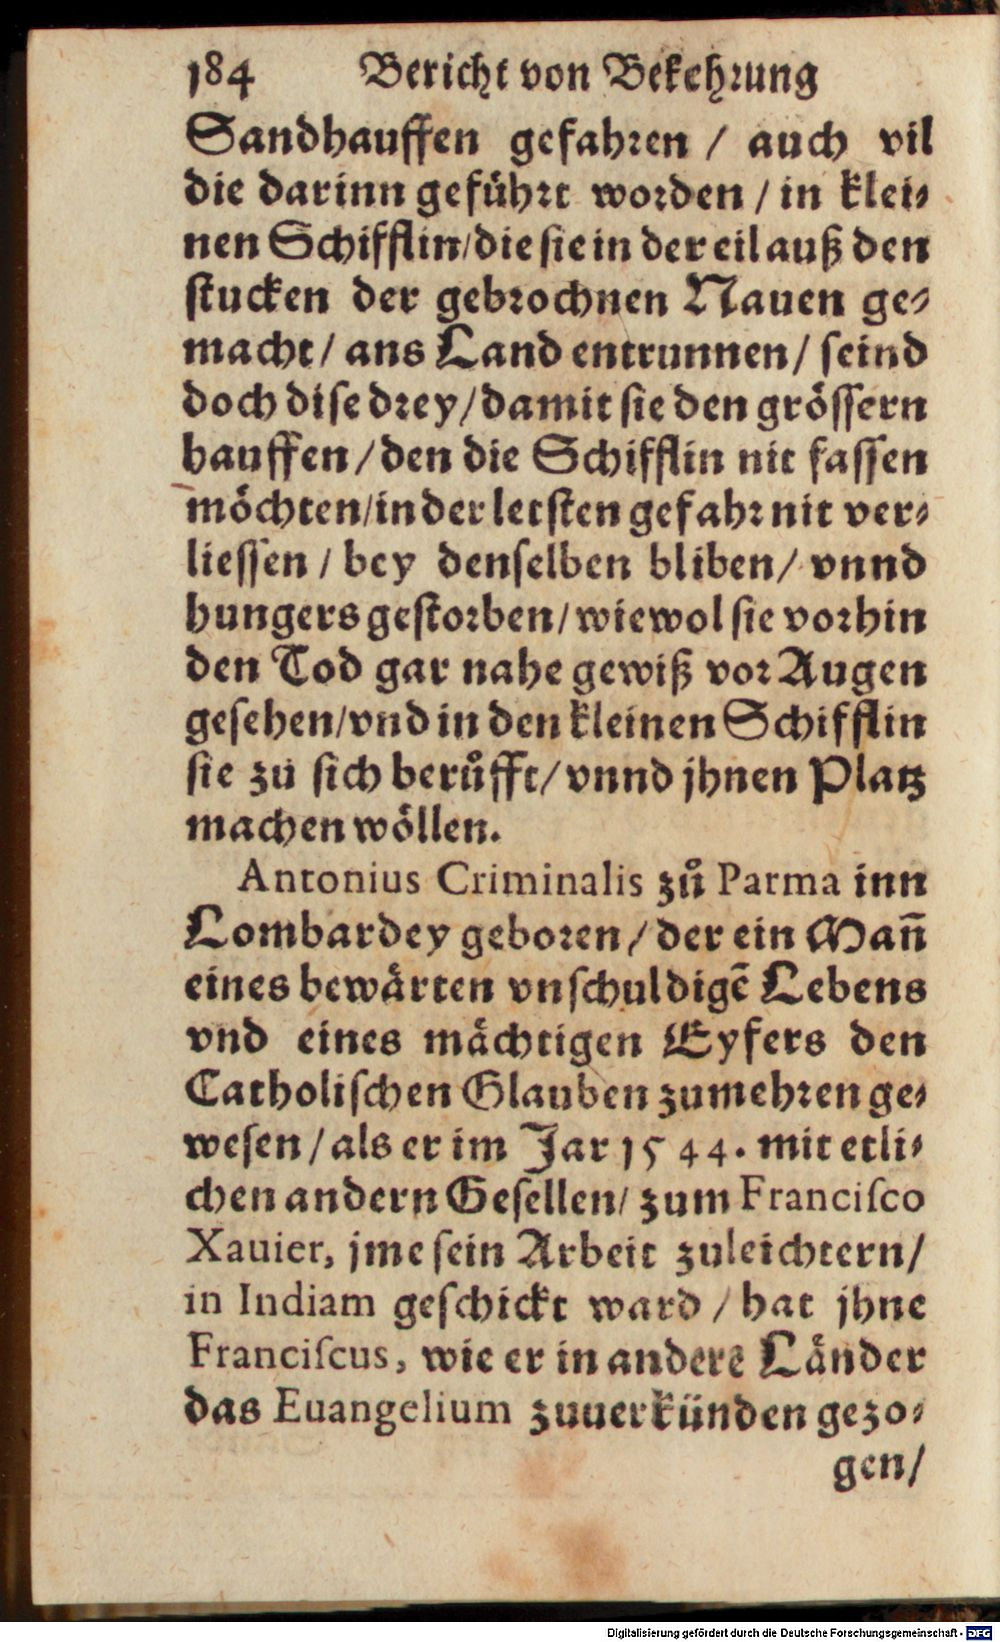 184 Bericht von Bekehrung
Sandhauffen gefahren / auch vil
die darinn geführt worden / in klei⸗
nen Schifflin/die sie in der eil auß den
stucken der gebrochnen Nauen ge⸗
macht/ ans Land entrunnen/ seind
doch dise drey/damit sie den grössern
hauffen/den die Schifflin nit fassen
möchten/in der letsten gefahr nit ver⸗
liessen / bey denselben bliben/ vnnd
hungers gestorben/wiewol sie vorhin
den Tod gar nahe gewiß vor Augen
gesehen/vnd in den kleinen Schifflin
sie zu sich berůfft/vnnd jhnen Platz
machen wöllen.
Antonius Criminalis zů Parma inn
Lombardey geboren/der ein Mañ
eines bewärten vnschuldigē Lebens
vnd eines mächtigen Eyfers den
Catholischen Glauben zumehren ge⸗
wesen/als er im Jar 1544. mit etli⸗
chen andern Gesellen/ zum Franciſco
Xauier, jme sein Arbeit zuleichtern/
in Indiam geschickt ward / hat jhne
Franciſcus, wie er in andere Länder
das Euangelium zuuerkünden gezo⸗
gen/
Digitalisierung gefördert durch die Deutsche Forschungsgemeinschaft - DFG